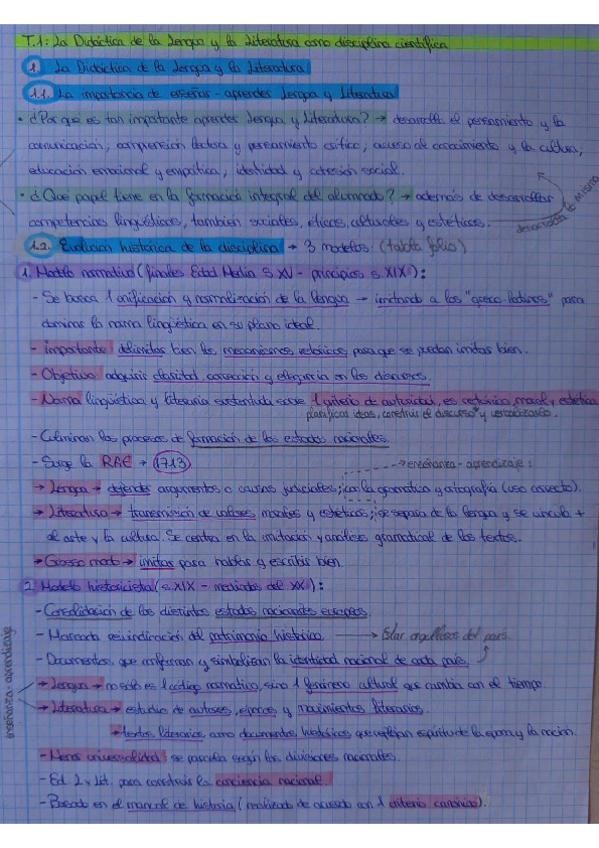 T.1: La Didáctica de la Lengua y la Literatura como disciplina científica
1. La Didáctica de la Lengua y la Literatura
1.1. La importancia de enseñar - aprender Lengua y Literatura
• ¿Por qué es tan importante aprender Lengua y Literatura? → desarrolla el pensamiento y la
comunicación, comprensión lectora y pensamiento crítico, acceso al conocimiento y la cultura,
educación emocional y empática, identidad y cohesión social.
• ¿Qué papel tiene en la formación integral del alumnado? → además de desarrollar
competencias lingüísticas, también sociales, éticas, culturales y estéticas.
1.2. Evolución histórica de la disciplina → 3 modelos: (tabla folio)
1. Modelo normativo (finales Edad Media s. XV - principios s. XIX):
- Se busca 1 unificación y normalización de la lengua → imitando a los "greco-latinos" para
dominar la norma lingüística en su plano ideal.
- importante: delimitar bien los mecanismos retóricos, para que se puedan imitar bien.
- Objetivo: adquirir claridad, corrección y elegancia en los discursos.
- Norma lingüística y literaria sustentada sobre 1 criterio de autoridad, es retórico, moral y estética
planificar ideas, construir el discurso y verbalizarlo.
- Culminan los procesos de formación de los estados nacionales.
- Surge la RAE → 1713
→ enseñanza - aprendizaje:
→ Lengua → defender argumentos o causas judiciales; con la gramática y ortografía (uso correcto).
→ Literatura → transmisión de valores morales y estéticos; se separa de la lengua y se vincula +
al arte y la cultura. Se centra en la imitación y análisis gramatical de los textos.
→ Grosso modo → imitar para hablar y escribir bien.
2. Modelo historicista (s. XIX - mediados del XX):
- Consolidación de los distintos estados nacionales europeos.
- Marcada reivindicación del patrimonio histórico → Estar orgullosos del país
- Documentos que conforman y simbolizan la identidad nacional de cada país.
enseñanza-aprendizaje
→ Lengua → no sólo es 1 código normativo, sino 1 fenómeno cultural que cambia con el tiempo
→ Literatura → estudio de autores, épocas y movimientos literarios.
→ textos literarios, como documentos históricos que reflejan espíritu de la época y la nación.
- Menos universalidad: se parcela según las divisiones nacionales.
- Ed. L y Lit. para construir la conciencia nacional.
- Basado en el manual de historia (realizado de acuerdo con 1 criterio canónico).